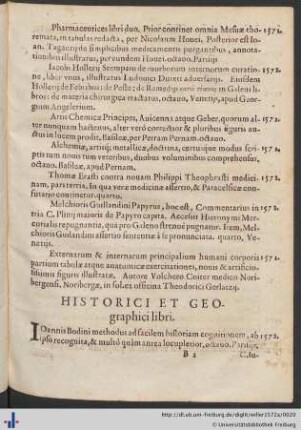 Pharmaceutices libri duo. Prior continet omnia Mesuæ theo- 1571.
remata, in tabulas redacta, per Nicolaum Houel. Posterior est Io-
an. Tagautij de simplicibus medicamentis purgantibus, annota-
tionibus illustratus, per eundem Houel. octauo. Parisijs.
Iacobi Hollerij Stempani de morborum internorum curatio- 1572.
ne, liber vnus, illustratus Ludouici Dureti aduersarijs. Eiusdem
Hollerij de Febribus: de Peste: de Remedijs
libro: de materia chirurgica tractatus, octauo, Venetijs, apud Geor-
gium Angelerium.
Artis Chemicæ Principes, Auicenna atque Geber, quorum al- 1572.
ter nunquam hactenus, alter verò correctior & pluribus figuris au-
ctus in lucem prodit, Basileæ, per Pernam. octauo.
Alchemiæ, artisq́; metallicæ, doctrina, certusque modus scri- 1572.
ptis tum nouis tum veteribus, duobus voluminibus comprehensus,
octauo. Basileæ, apud Pernam.
Thomæ Erasti contra nouam Philippi Theophrasti medici- 1572.
nam, pars tertia. In qua veræ medicinæ assertio, & Paracelsicæ con-
futatio continetur. quarto.
Melchioris Guilandini Papyrus, hoc est, Commentarius in 1572.
tria C. Plinij maioris de Papyro capita. Accessit Hieronymi Mer-
curialis repugnantia, qua pro Galeno strenuè pugnatur. Item, Mel-
chioris Guilandini assertio sententiæ à se pronunciatæ. quarto, Ve-
netijs.
Externarum & internarum principalium humani corporis 1572.
partium tabulæ atque anatomicæ exercitationes, nouis & artificio-
sissimis figuris illustratæ. Autore Volchero Coiter medico Nori-
bergensi, Noribergæ, in fol. ex officina Theodorici Gerlatzij.
HISTORICI ET GEO-
graphici libri.
IOannis Bodini methodus ad facilem historiam cognitionem, ab 1572.
ipso recognita, & multò quàm antea locupletior, octauo. Parisijs.
B 2
http://dl.ub.uni-freiburg.de/diglit/weller1572a/0020
© Universitätsbibliothek Freiburg